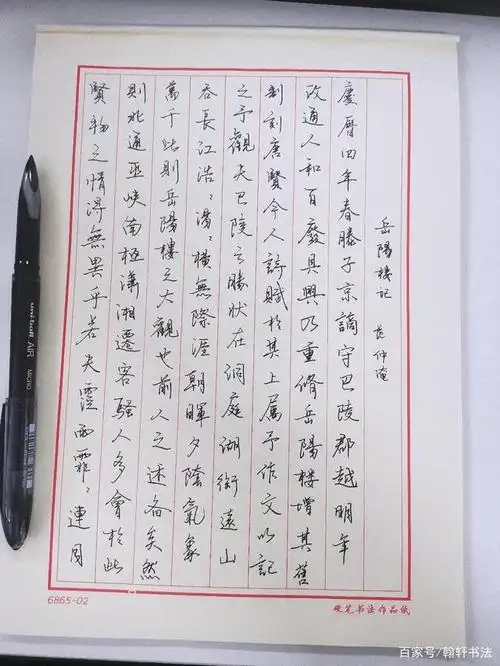 岳陽樓記 范仲淹
慶曆四年春滕子京謫守巴陵郡越明年
政通人和百廢具興乃重脩岳陽樓增其舊
制刻唐賢今人詩賦於其上屬予作文以記
之予觀夫巴陵之勝狀在洞庭湖銜遠山
吞長江浩〻湯〻橫無際涯朝暉夕陰氣象
萬千此則岳陽樓之大觀也前人之述備矣然
則北通巫峽南極瀟湘遷客騷人多會於此
覽物之情得無異乎若夫霪雨霏〻連月
6865-02
硬笔书法作品纸
uni-ball AIR MICRO
百家号/翰轩书法